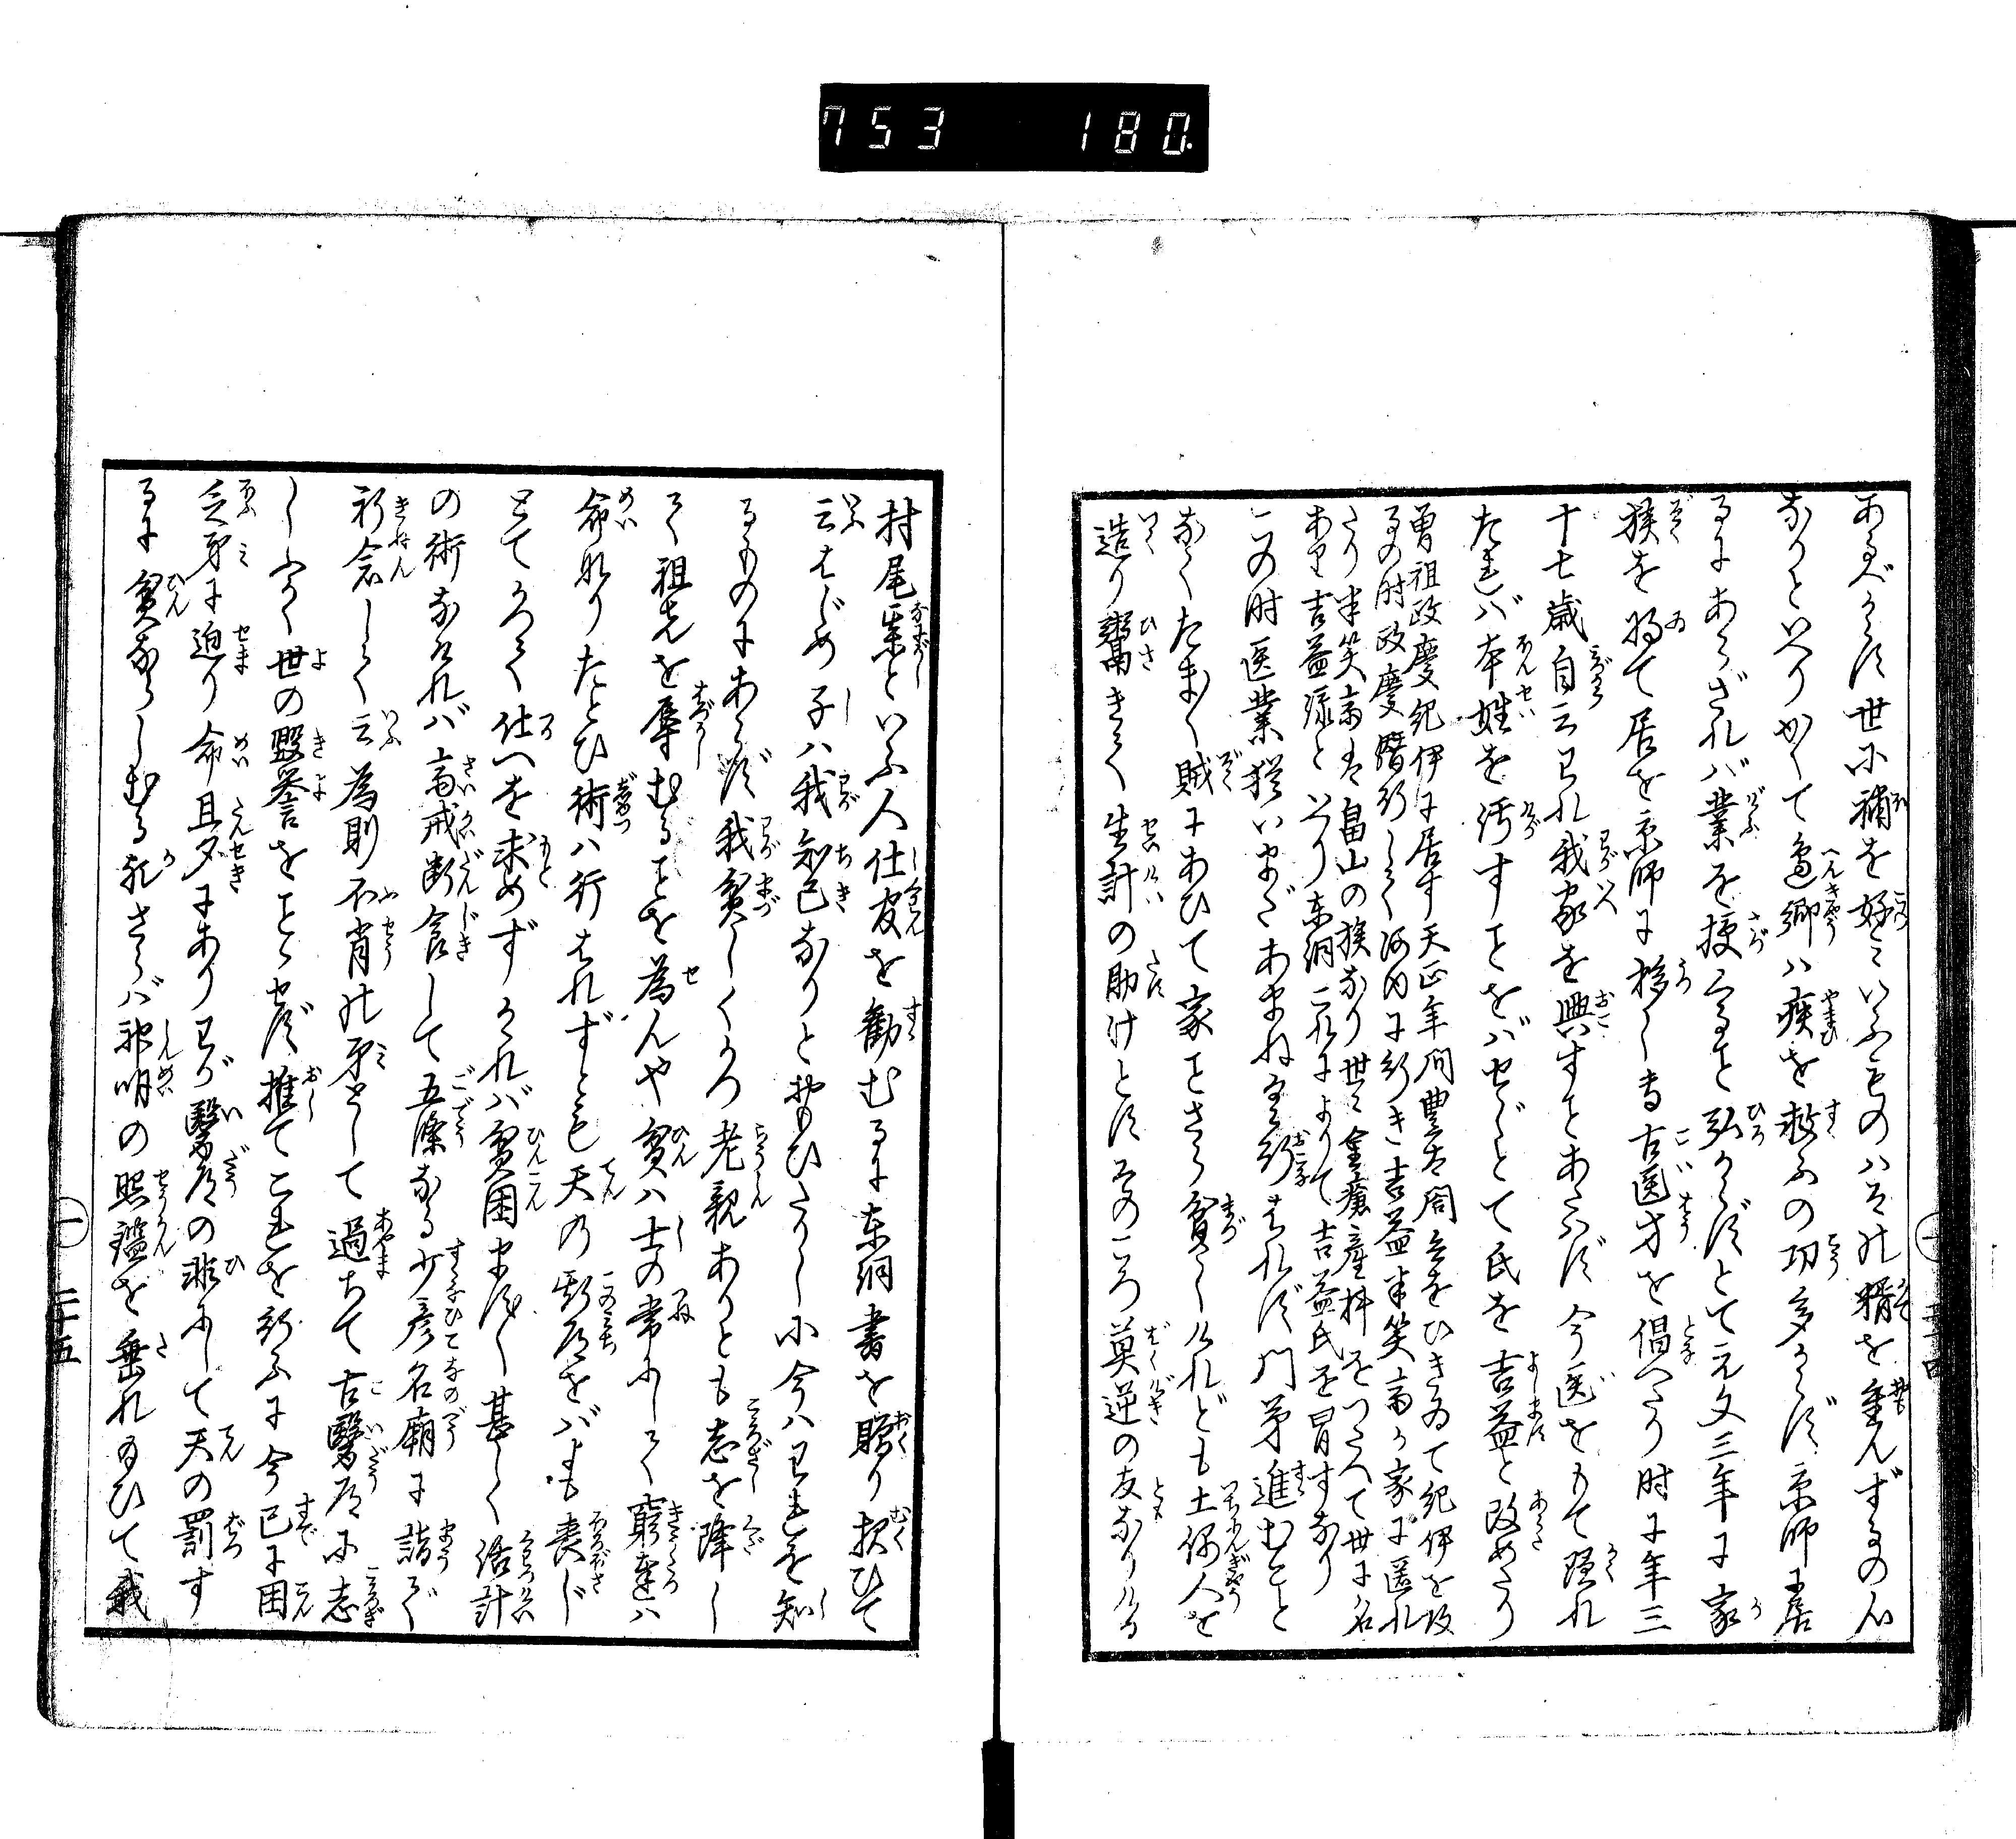 753 180
あるべからず世に補を好といふものハその精を重んずるの心
なりといへりかくて邉郷ハ疾を救ふの功多からず京師に居
るにあらざれバ業を授くること弘からずとて元文三年に家
族を将て居を京師に移し専古医方を倡へたり時に年三
十七歳自云われ我家を興すことあたハず今医をもて隠れ
たれバ本姓を汚すことをバせじとて氏を吉益と改めたり
曽祖政慶紀伊に居す天正年間豊太閤兵をひきゐて紀伊を攻
るの时政慶潜行して河内に行き吉益半笑斎が家に匿れ
たり半笑斎ハ畠山の族なり世々金瘡産科をつたへて世に名
あり吉益流といへり東洞これによりて吉益氏を冒すなり
この时医業猶いまだあまねく行はれず門弟進むこと
なくたま〳〵賊にあひて家ことさら貧しけれども土偶人を
造り鬻ぎて生計の助けとすそのころ莫逆の友なりける
村尾某といふ人仕官を勧むるに東洞書を贈り报ひて
云はじめ子ハ我知己なりとおもひたりしに今ハわれを知
るものにあらず我貧しくかつ老親ありとも志を降し
て祖先を辱むることを為んや貧ハ士の常にして窮達ハ
命なりたとひ術ハ行はれずとも天の斯道をバいまだ喪じ
とてかつて仕へを求めずされバ貧困ます〳〵甚しく活計
の術なけれバ斎戒断食して五條なる少彦名廟に詣で
祈念して云為則不肖の身として過ちて古醫道に志
しふかく世の毀誉をことゝせず推てこれを行ふに今已に困
乏身に迫り命旦夕にありわが醫道の非にして天の罰す
るに貧ならしむる歟さらバ神明の照鑑を垂れ給ひて我
一 二十五